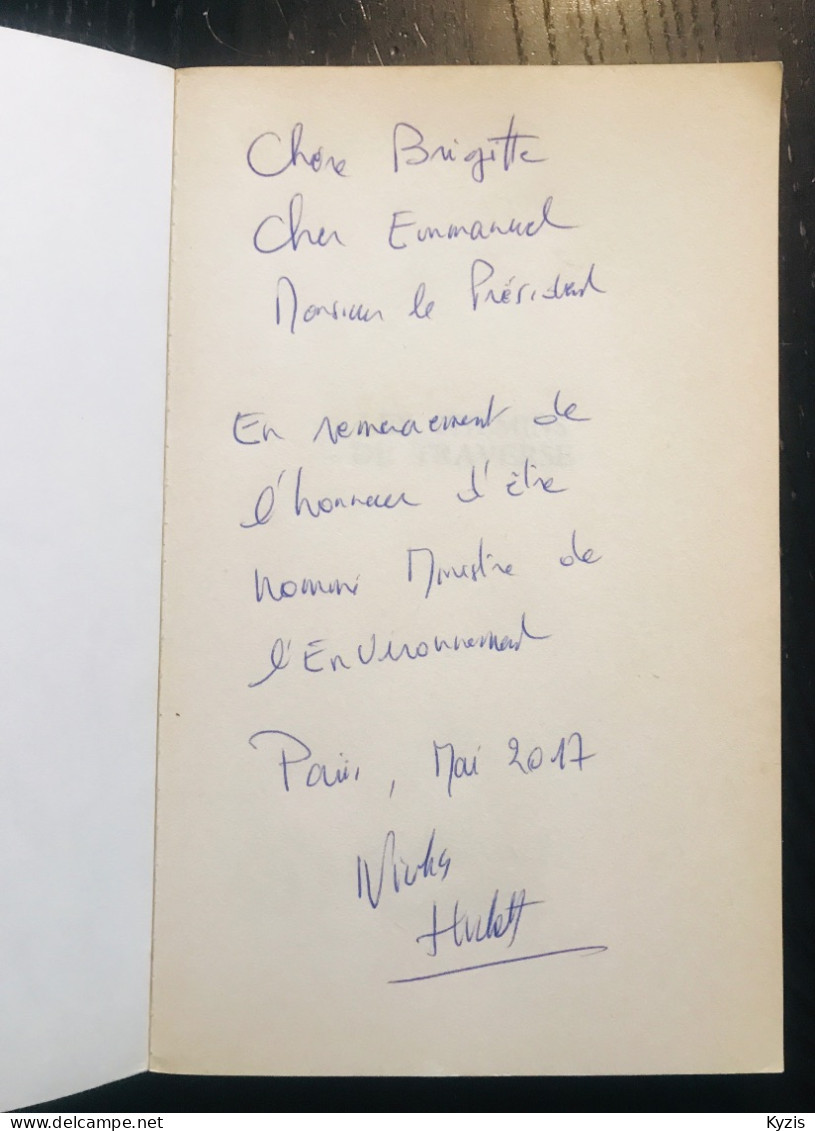 Chère Brigitte
Cher Emmanuel
Monsieur le Président
En remerciement de
l'honneur d'être
nommé Ministre de
l'Environnement
Paris, Mai 2017
Nicolas
Hulot
Kyzis